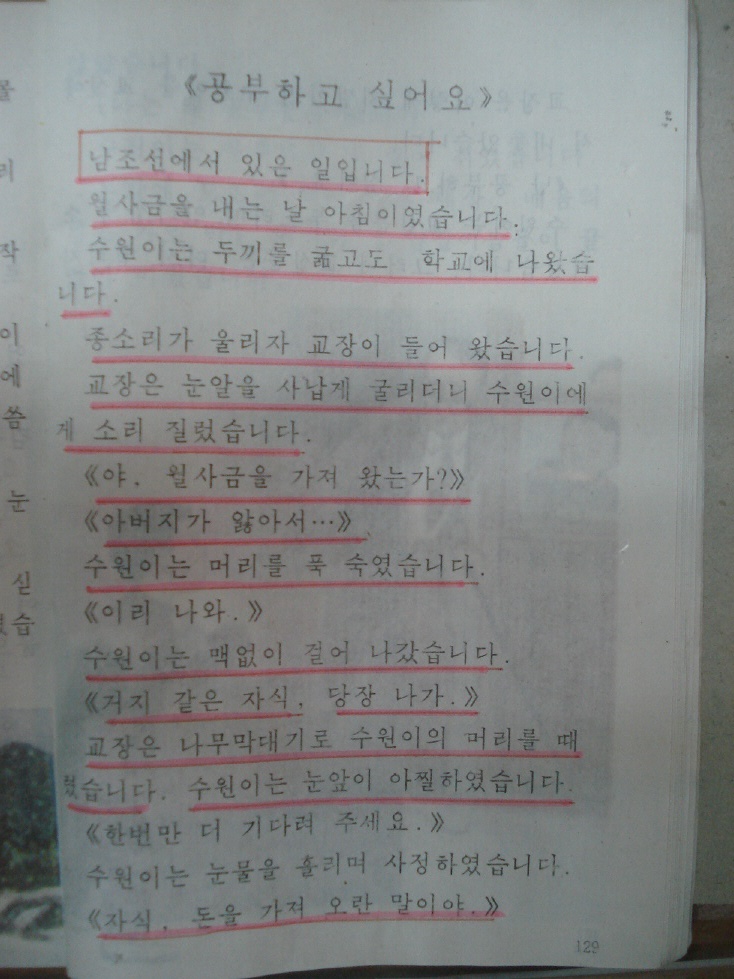 《공부하고 싶어요》
남조선에서 있은 일입니다.
월사금을 내는 날 아침이였습니다.
수원이는 두끼를 굶고도 학교에 나왔습
니다.
종소리가 울리자 교장이 들어 왔습니다.
교장은 눈알을 사납게 굴리더니 수원이에
게 소리 질렀습니다.
《야, 월사금을 가져 왔는가?》
《아버지가 앓아서…》
수원이는 머리를 푹 숙였습니다.
《이리 나와.》
수원이는 맥없이 걸어 나갔습니다.
《거지 같은 자식, 당장 나가.》
교장은 나무막대기로 수원이의 머리를 때
렸습니다. 수원이는 눈앞이 아찔하였습니다.
《한번만 더 기다려 주세요.》
수원이는 눈물을 흘리며 사정하였습니다.
《자식, 돈을 가져 오란 말이야.》
129